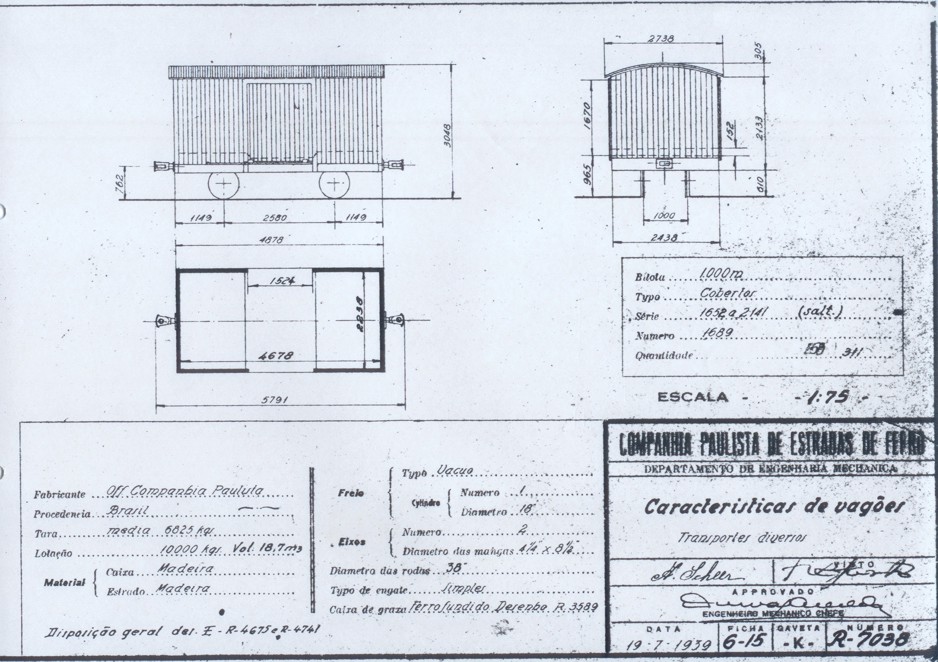 2738
305
1670
152
2133
3048
762
965
610
1149 2580 1149
1000
4878
2438
1524
2238
4678
5791
Bitola 1.000m
Typo Coberto
Série 1652 a 2141 (salt.)
Numero 1689
Quantidade 311
ESCALA - -1:75-
COMPANHIA PAULISTA DE ESTRADAS DE FERRO
DEPARTAMENTO DE ENGENHARIA MECHANICA
Caracteristicas de vagões
Transportes diversos
A. Scheer VISTO
APPROVADO
ENGENHEIRO MECHANICO CHEFE
DATA FICHA GAVETA NUMERO
19-7-1939 6-15 -K- R-7038
Fabricante Off. Companhia Paulista
Procedencia Brasil
Tara media 6825 kgs
Lotação 10000 kgs. Vol. 18,7m3
Material Caixa Madeira
Estrado Madeira
Freio Typo Vacuo
Cylindro Numero 1
Diametro 18"
Eixos Numero 2
Diametro das mangas 4 1/4 x 8 1/2
Diametro das rodas 38"
Typo de engate Simples
Caixa de graxa Ferro fundido Desenho R. 3589
Disposição geral des. E-R-4675 e R-4741